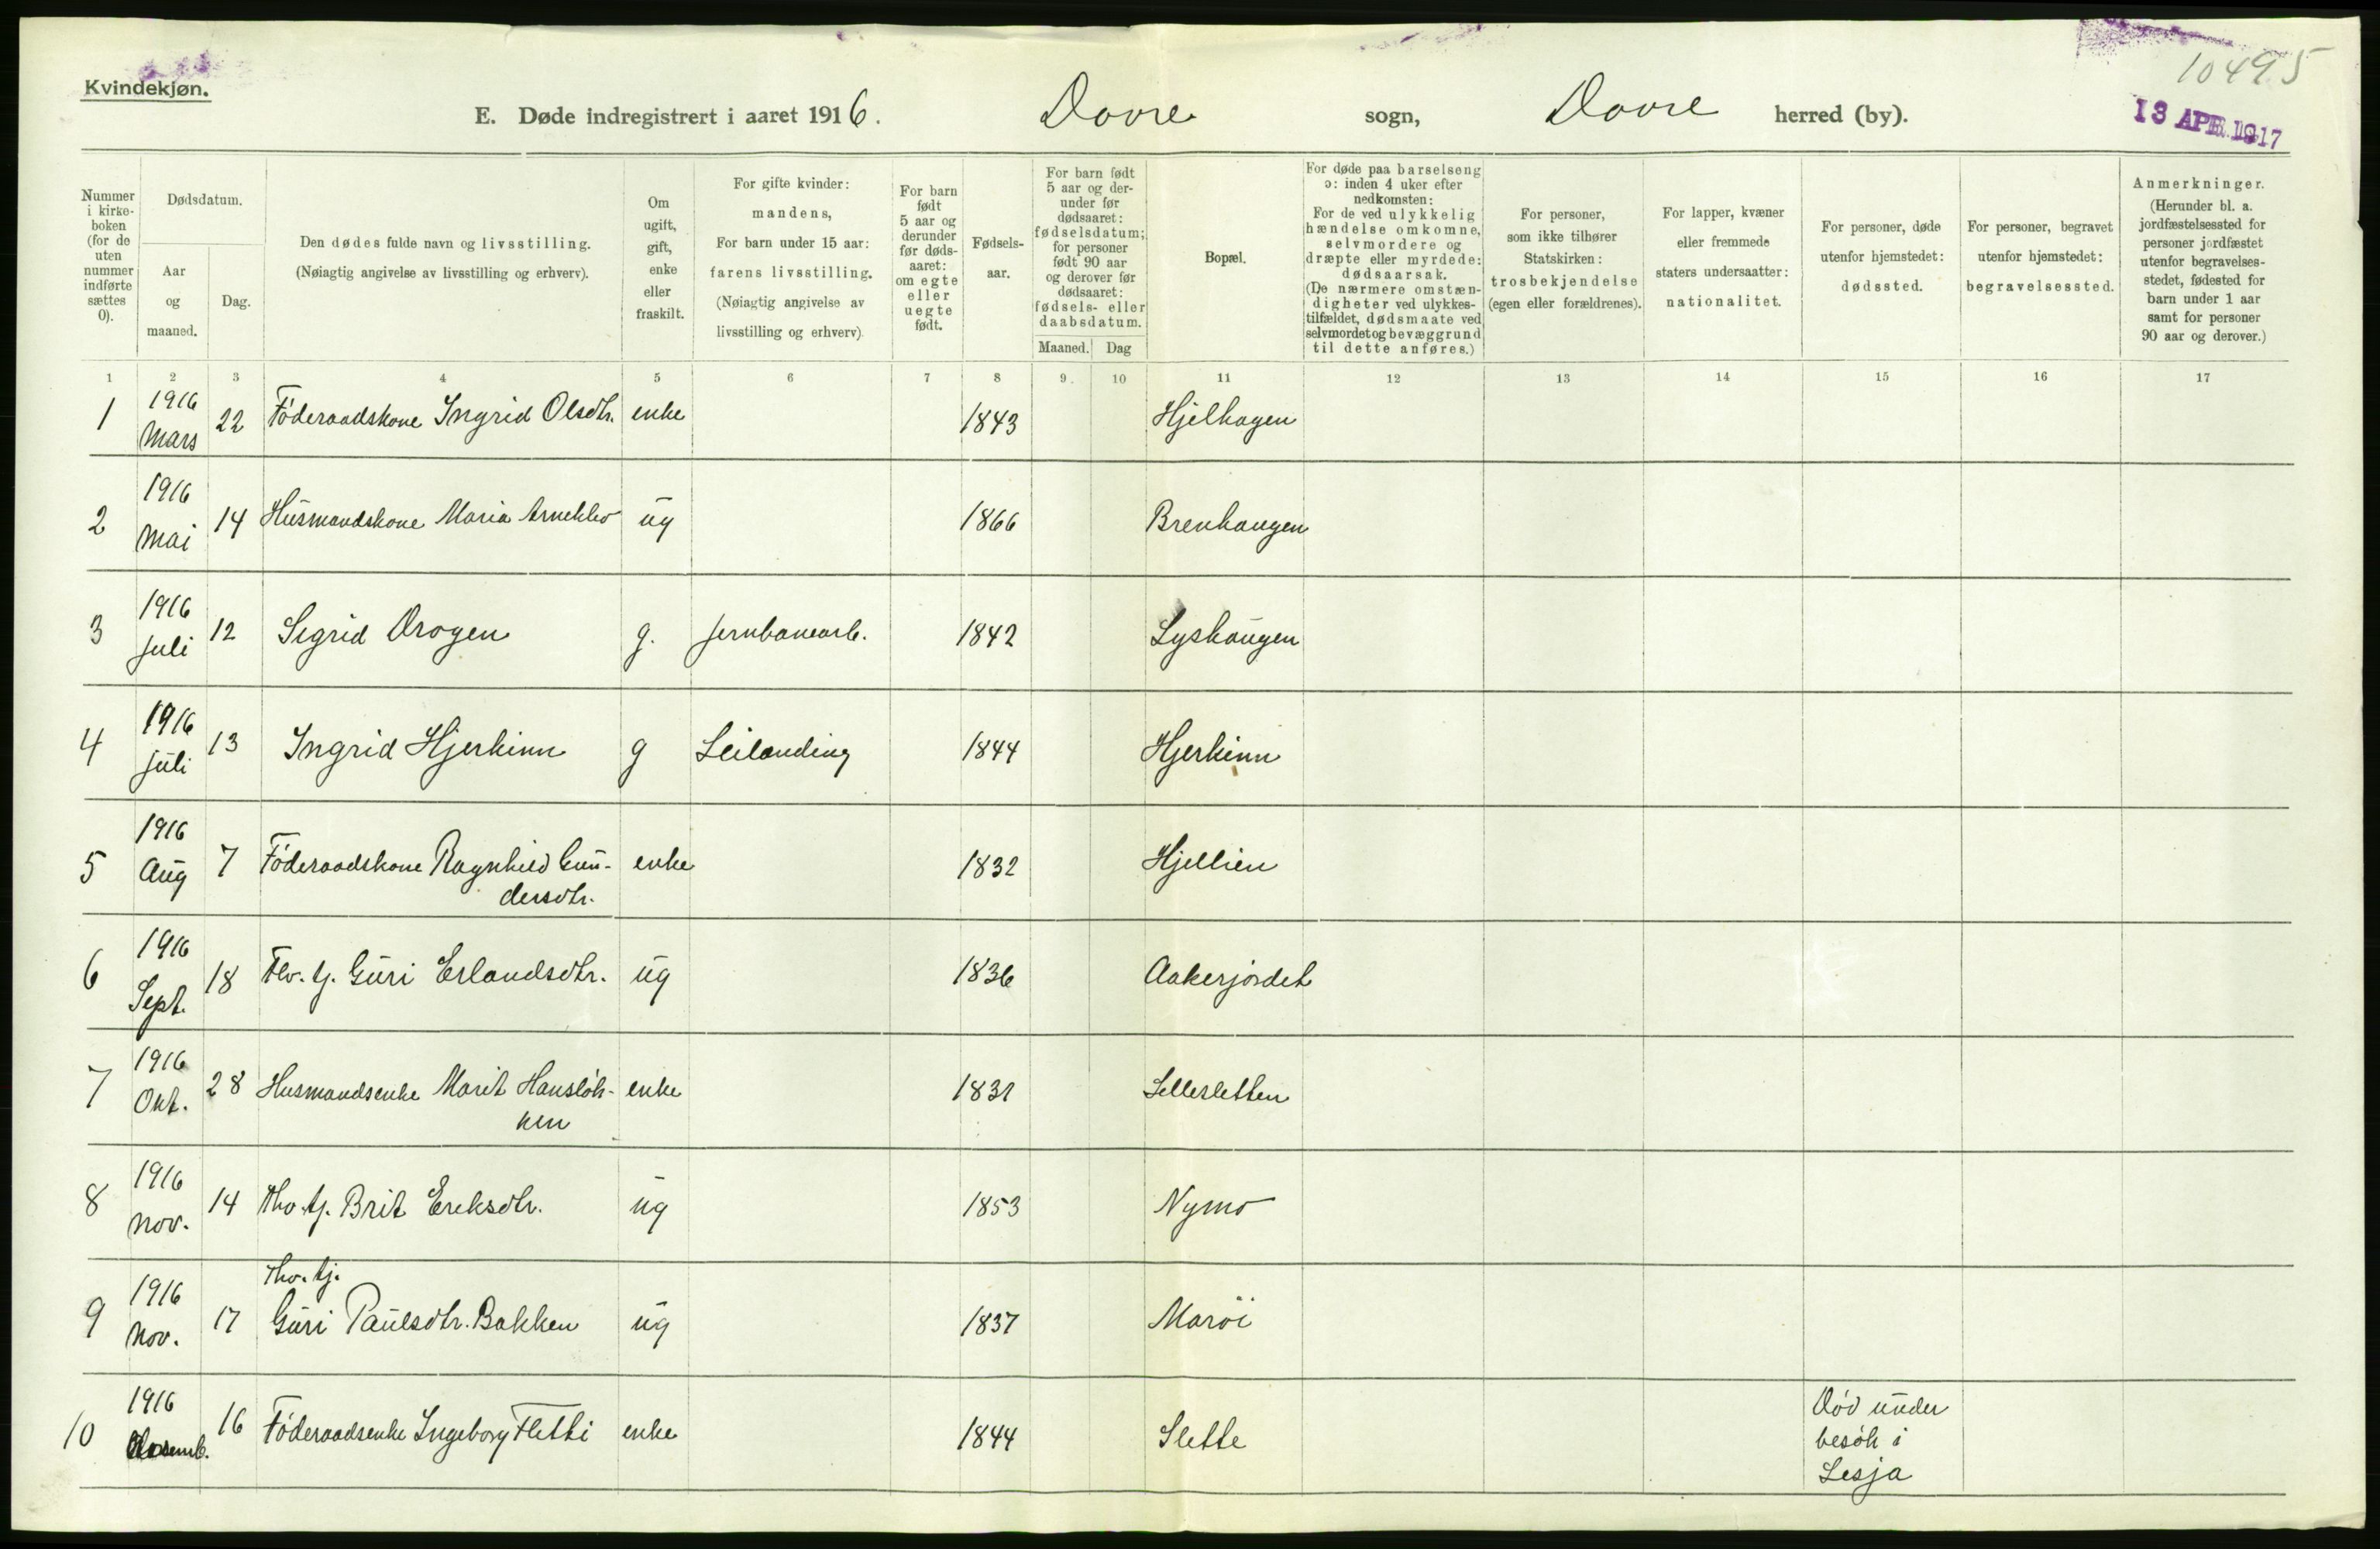 Kvindekjøn.
10495
13 APR. 1917
E. Døde indregistrert i aaret 1916. Dovre sogn, Dovre herred (by).
Nummer i kirkeboken (for de uten nummer indførte sættes 0).
Dødsdatum.
Aar og maaned.
Dag.
Den dødes fulde navn og livsstilling.
(Nøiagtig angivelse av livsstilling og erhverv).
Om ugift, gift, enke eller fraskilt.
For gifte kvinder: mandens,
For barn under 15 aar: farens livsstilling.
(Nøiagtig angivelse av livsstilling og erhverv).
For barn født 5 aar og derunder før dødsaaret: om egte eller uegte født.
Fødselsaar.
For barn født 5 aar og derunder før dødsaaret: fødselsdatum; for personer født 90 aar og derover før dødsaaret: fødsels- eller daabsdatum.
Maaned. Dag
Bopæl.
For døde paa barselseng ɔ: inden 4 uker efter nedkomsten:
For de ved ulykkelig hændelse omkomne, selvmordere og dræpte eller myrdede: dødsaarsak.
(De nærmere omstændigheter ved ulykkestilfældet, dødsmaate ved selvmordet og bevæggrund til dette anføres.)
For personer, som ikke tilhører Statskirken: trosbekjendelse (egen eller forældrenes).
For lapper, kvæner eller fremmede staters undersaatter: nationalitet.
For personer, døde utenfor hjemstedet: dødssted.
For personer, begravet utenfor hjemstedet: begravelsessted.
Anmerkninger.
(Herunder bl. a. jordfæstelsessted for personer jordfæstet utenfor begravelsesstedet, fødested for barn under 1 aar samt for personer 90 aar og derover.)
1 2 3 4 5 6 7 8 9. 10 11 12 13 14 15 16 17
1 1916 Mars 22 Føderaadskone Ingrid Olsdtr. enke 1843 Hjelhagen
2 1916 Mai 14 Husmandskone Maria Arnekleo ug 1866 Brenhaugen
3 1916 Juli 12 Sigrid Drogen g. Jernbanearb. 1842 Lyshaugen
4 1916 Juli 13 Ingrid Hjerkinn g Leilending 1844 Hjerkinn
5 1916 Aug 7 Føderaadskone Ragnhild Gundersdtr. enke 1832 Hjellien
6 1916 Sept. 18 Guri Erlandsdtr. ug 1836 Aakerjordet
7 1916 Okt. 28 Husmandsenke Marit Hansløkken enke 1831 Lillesletten
8 1916 Nov. 14 Thv. tj. Brit Eriksdtr. ug 1853 Nymo
9 1916 Nov. 17 Thv. tj. Guri Paulsdtr. Bakken ug 1837 Marøi
10 1916 16 Føderaadsenke Ingeborg Fletti enke 1844 Slette Død under besøk i Lesja